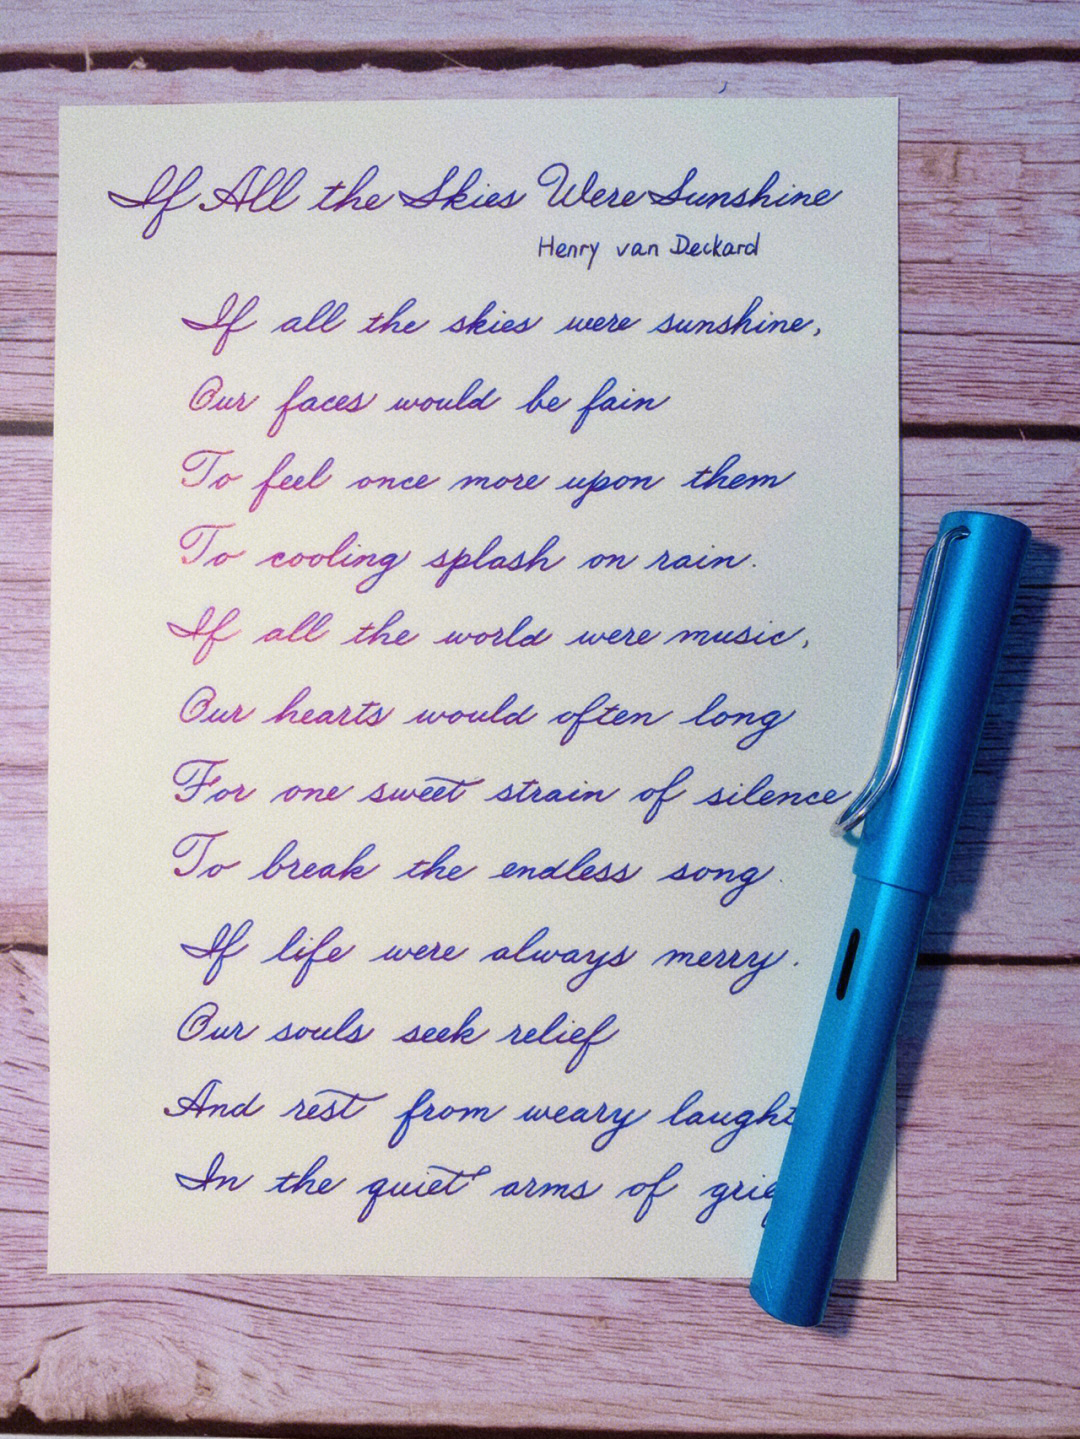 If All the Skies Were Sunshine
Henry van Deckard
If all the skies were sunshine,
Our faces would be fain
To feel once more upon them
To cooling splash on rain.
If all the world were music,
Our hearts would often long
For one sweet strain of silence
To break the endless song.
If life were always merry.
Our souls seek relief
And rest from weary
In the quiet arms of